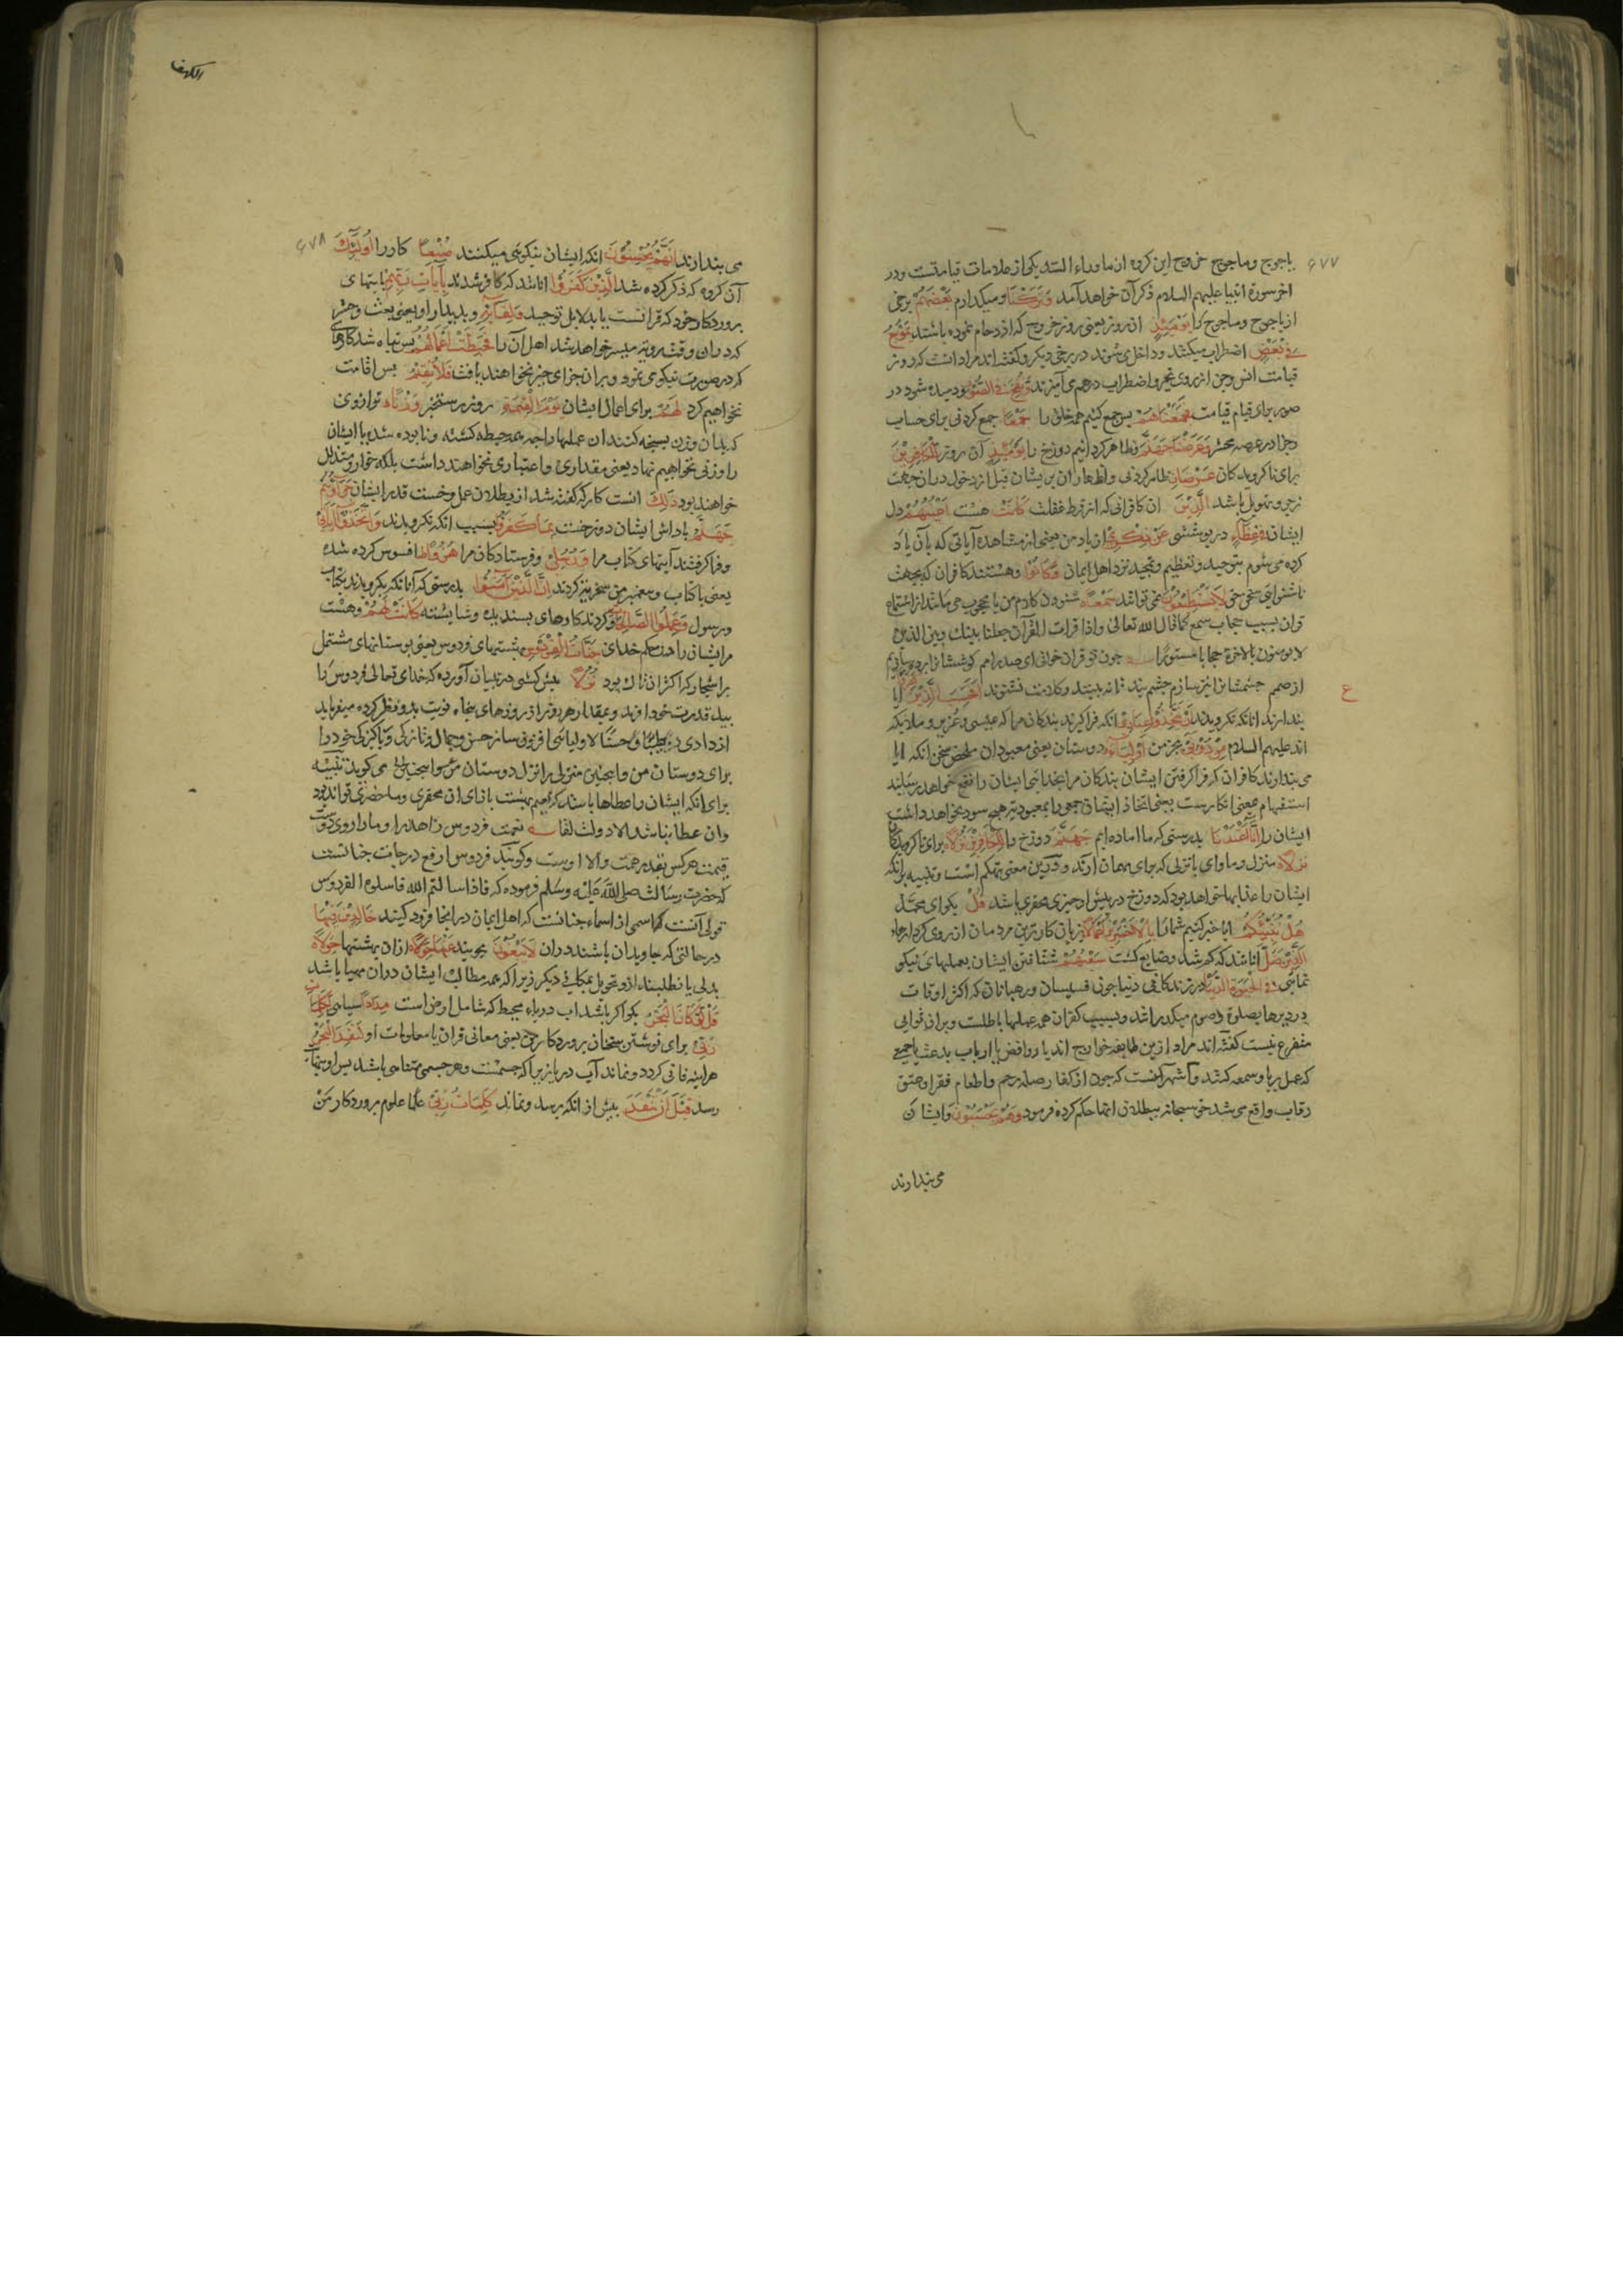 ۶۷۷
یاجوج وماجوج خروج این کروه از ماوراء السّد یکی از علامات قیامتست ودر
اخر سورة انبیا علیهم السلام ذکر آن خواهد آمد وَتَرَكْنَا ومیکذارم بَعْضَهُمْ برخی
از یاجوج وماجوج را يَوْمَئِذٍ ان روز یعنی روز خروج که ازدحام نموده باشند يَمُوجُ
فِي بَعْضٍ اضطراب میکنند وداخل می شوند در برخی دیکر وکفته اند مراد انست که روز
قیامت انس وجن از روی تحیر واضطراب درهم می آمیزند وَنُفِخَ فِي الصُّورِ ودمیده شود در
صور برای قیام قیامت فَجَمَعْنَاهُمْ پس جمع کنیم همه خلق را جَمْعًا جمع کردنی برای حساب
وجزا در عرصه محشر وَعَرَضْنَا جَهَنَّمَ وظاهر کردانیم دوزخ را يَوْمَئِذٍ آن روز لِلْكَافِرِينَ
برای ناکرویدکان عَرْضًا ظاهر کردنی واظهار ان بریشان قبل از دخول دران جهت
زجر وتهویل باشد الَّذِينَ ان کافرانی که از فرط غفلت كَانَتْ هست أَعْيُنُهُمْ دل
ایشان فِي غِطَاءٍ در پوششی عَنْ ذِكْرِي از یاد من یعنی از مشاهده آیاتی که بآن یاد
کرده می شوم بتوحید وتعظیم وتمجید نزد اهل ایمان وَكَانُوا وهستند کافران که بجهت
ناشنوایی سخن حق لَا يَسْتَطِيعُونَ نمی توانند سَمْعًا شنودن کلام من یا محجوب می مانند از استماع
قران بسبب حجاب سمع کما قال الله تعالی واذا قرات القرآن جعلنا بینك وبین الذین
لا یومنون بالاخرة حجابا مستورا چون تو قران خوانی ای صدر امم کوششانرا پرده سازم
از صمم چشمشانرا نیز سازم چشم بند تا نه بینند وکلامت نشنوند أَفَحَسِبَ الَّذِينَ كَفَرُوا ایا
ع
پندارند انانکه نکرویدند أَنْ يَتَّخِذُوا عِبَادِي انکه فرا کیرند بندکان مرا که عیسی وعزیر وملایکه
اند علیهم السلام مِنْ دُونِي بجز من أَوْلِيَاءَ دوستان یعنی معبودان ملخص سخن انکه ایا
می پندارند کافران که فرا کرفتن ایشان بندکان مرا بخدایی ایشان را نفع خواهد رسانید
استفهام بمعنی انکارست یعنی اتخاذ ایشان جمعی را بمعبودیت هیچ سود نخواهد داشت
ایشان را إِنَّا أَعْتَدْنَا بدرستی که ما اماده ایم جَهَنَّمَ دوزخ را لِلْكَافِرِينَ نُزُلًا برای ناکرویدکان
نُزُلًا منزل وماوای یا نزلی که برای مهمان ارند ودرین معنی تهکم است وتنبیه برانکه
ایشان را عذابها خواهد بود که دوزخ در پیش او چیزی محقری باشد قُلْ بکو ای محمّد
هَلْ نُنَبِّئُكُمْ ایا خبر کنیم شمارا بِالْأَخْسَرِينَ أَعْمَالًا بزیان کارترین مردمان از روی کردارها
الَّذِينَ ضَلَّ انانند که کم شد وضایع کشت سَعْيُهُمْ شتافتن ایشان بعملهای نیکو
نمایی فِي الْحَيَوةِ الدُّنْيَا در زندکانی دنیا چون قسیسان ورهبانان که اکثر اوقات
در دیرها بصلوة وصوم میکذرانند وبسبب کفر ان همه عملها باطلست وبران ثوابی
متفرع نیست کفته اند مراد ازین طایفه خوارج اند یا روافض یا ارباب بدعت یا جمعی
که عمل بریا وسمعه کنند واشهر آنست که چون از کفار صله رحم واطعام فقرا وعتق
رقاب واقع می شد حق سبحانه ببطلان انها حکم کرده فرمود وَهُمْ يَحْسَبُونَ وایشان
می پندارند
الکهف
۶۷۸
می پندارند أَنَّهُمْ يُحْسِنُونَ انکه ایشان نیکویی میکنند صُنْعًا کار را أُولَئِكَ
آن کروه که ذکر کرده شد الَّذِينَ كَفَرُوا انانند که کافر شدند بِآيَاتِ رَبِّهِمْ بایتهای
پروردکار خود که قرانست یا بدلایل توحید وَلِقَائِهِ وبدیدار او یعنی بعث وحشر
که دران وقت رویت میسر خواهد شد اهل آن را فَحَبِطَتْ أَعْمَالُهُمْ پس تباه شد کارهای
که در صورت نیکو می نمود وبران جزای خیر نخواهند یافت فَلَا نُقِيمُ پس اقامت
نخواهیم کرد لَهُمْ برای اعمال ایشان يَوْمَ الْقِيَمَةِ روز رستخیز وَزْنًا ترازوی
که بدان وزن بسنجه کنند ان عملها راچه همه حبطه کشته ونابوده شد یا ایشان
را وزنی نخواهیم نهاد یعنی مقداری واعتباری نخواهند داشت بلکه خوار ومتذلل
خواهند بود ذَلِكَ انست کار که کفته شد از بطلان عمل وخست قدر ایشان جَزَاؤُهُمْ
جَهَنَّمُ پاداش ایشان دوزخست بِمَا كَفَرُوا بسبب انکه نکرویدند وَاتَّخَذُوا آيَاتِي
وفرا کرفتند آیتهای کتاب مرا وَرُسُلِي وفرستادکان مرا هُزُوًا افسوس کرده شده
یعنی با کتاب وپیغمبر من سخریت کردند إِنَّ الَّذِينَ آمَنُوا بدرستی که آنانکه بکرویدند بکتاب
ورسول وَعَمِلُوا الصَّالِحَاتِ وکردند کارهای پسندیده وشایسته كَانَتْ لَهُمْ وهست
مر ایشان را در حکم خدای جَنَّاتُ الْفِرْدَوْسِ بهشتهای فردوس یعنی بوستانهای مشتمل
بر اشجار که اکثر ان تاك بود نُزُلًا پیش کشی در تبیان آورده که خدای تعالی فردوس را
بید قدرت خود افرید وبمقدار هر روز از روزهای پنجاه نوبت بدو نظر کرده میفرماید
ازدادی طیبًا وحسنًا لاولیائی افزونی ساز حسن وجمال وتازکی وپاکیزکی خود را
برای دوستان من
برای انکه ایشان را عطاها باشد که نعیم بهشت بازای ان محقری وماحضری تواند بود
وان عطا نباشد الا دولت لقا نعمت فردوس زاهد را وما را روی دوست
قیمت هر کس بقدر همت والا اوست وکویند فردوس ارفع درجات جنانست
که حضرت رسالت صلی الله علیه وسلم فرموده که فاذا سالتم الله فاسلوه الفردوس
قولی آنست که اسمی از اسماء جنانست که اهل ایمان در انجا فرود کیند خَالِدِينَ فِيهَا
در حالتی که جاویدان باشند دران لَا يَبْغُونَ نجویند عَنْهَا حِوَلًا ازان بهشتها حِوَلًا
بدلی یا نطلبند ازو تحویل بمکانی دیکر زیرا که همه مطالب ایشان دران مهیا باشد
قُلْ لَوْ كَانَ الْبَحْرُ بکو اکر باشد اب دریاء محیط که شامل ارض است مِدَادًا سیاهی لِكَلِمَاتِ
رَبِّي برای نوشتن سخنان پروردکار من یعنی معانی قران یا معلومات او لَنَفِدَ الْبَحْرُ
هراینه فانی کردد ونماند آب دریا زیرا که جسمست وهر جسمی متناهی باشد پس او بنهایت
رسد قَبْلَ أَنْ تَنْفَدَ پیش از انکه برسد ونماند كَلِمَاتُ رَبِّي علما علوم پروردکار من